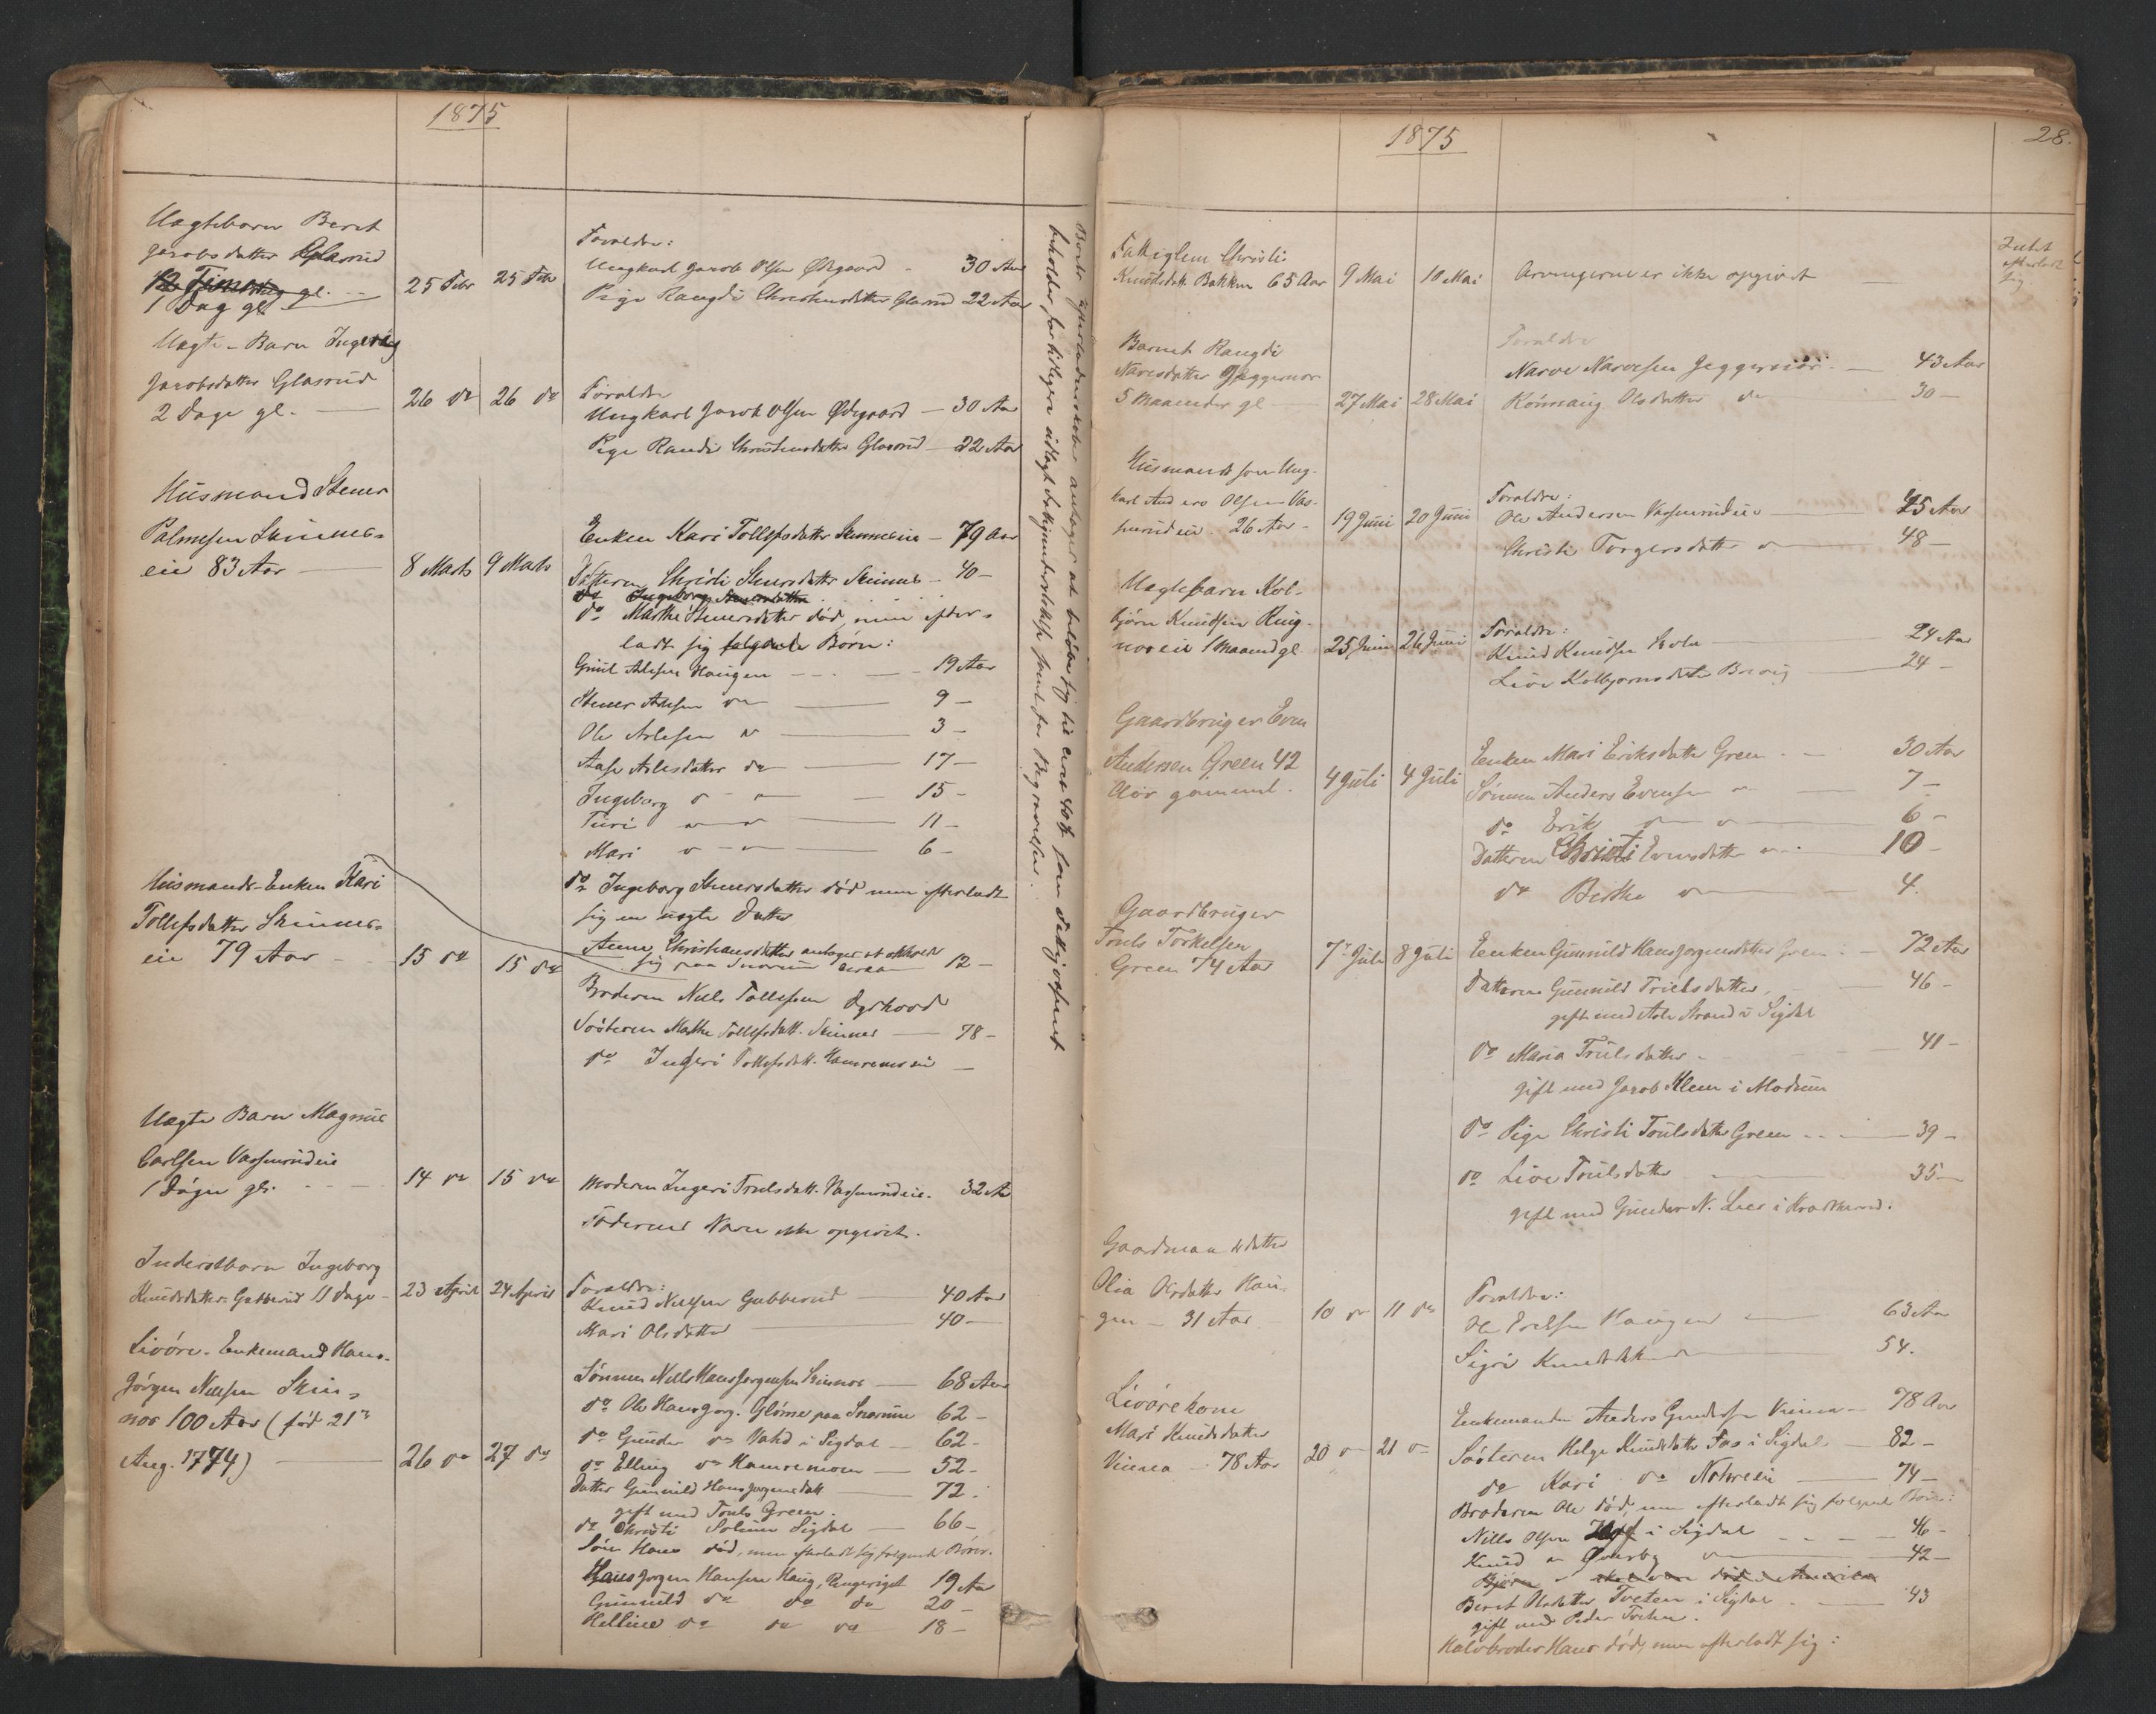 1875
Uægtebarn Beret
Jacobsdatter Glasrud
12 Timer gl.
1 Dag gl.
25 Febr 25 Febr
Forældre:
Ungkarl Jacob Olsen Ødegaard - 30 Aar
Pige Raugdi Christensdatter Glasrud 22 Aar
Uægte-Barn Ingeborg
Jacobsdatter Glasrud
2 Dage gl.
26 do 26 do
Forældre
Ungkarl Jacob Olsen Ødegaard - 30 Aar
Pige Randi Christensdatter Glasrud - 22 Aar
Husmand Stener
Palmesen Skinnes=
eie 83 Aar
8 Marts 9 Marts
Enken Kari Tollefsdatter Skinneseie - 79 Aar
Datteren Christi Stenersdatter Skinnes - 40 -
do Ingeborg Stenersdatter
do Marthe Stenersdatter død, men efter=
ladt sig følgende Børn:
Guul Aslesen Haugen - 19 Aar
Stener Aslesen do - 9 -
Ole Aslesen do - 3 -
Aase Aslesdatter do - 17 -
Ingeborg do - 15 -
Turi do - 11 -
Mari do - 6 -
do Ingeborg Stenersdatter død men efterladt
sig en uægte Datter
Anne Christiansdatter antages at opholde
sig paa Snarum circa 12 -
Husmands-Enken Kari
Tollefsdatter Skinnes=
eie 79 Aar
15 do 15 do
Broderen Niels Tollefsen
Søsteren Marthe Tollefsdatt. Skinnes - 78 -
do Ingeri Tollefsdatt. Hamremoen -
Uægte Barn Magnus
Carlsen Vasmrudeie
1 Døgn gl.
14 do 15 do
Moderen Ingeri Trulsdatt. Vasmrudeie. 32 Aar
Faderens Navn ikke opgivet.
Inderstbarn Ingeborg
Knudsdatter Gubberud 11 Dage -
23 April 24 April
Forældre:
Knud Nielsen Gubberud - 40 Aar
Mari Olsdatter - 40 -
Livøre-Enkemand Hans
Jørgen Nielsen Skin=
nes 100 Aar (født 21de
Aug. 1774)
26 do 27 do
Sønnen Niels Hansjørgensen Skinnes - 68 Aar
do Ole Hansjørg. Glømse paa Snarum 62 -
do Gunder do i Sigdal - 62 -
do Elling do Hamremoen - 52 -
Datter Gunnild Hansjørgensdatt. - 72 -
gift med Truls Green.
do Christi Solum Sigdal - 66 -
Søn Hans død, men efterladt sig følgende Børn:
Hans Jørgen Hansen Haug, Ringeriget 19 Aar
Gunnild do do do 20 -
Helline do do do 18 -
Boets Efterladenskaber antages at beløbe sig til circa 40 Sp som Fattigvæsenet
beholder for tidligere udlagt Fattigunderstøttelse samt for Begravelsen.
1875
28.
Fattiglem Christi
Knudsdatt. Bakken 65 Aar
9 Mai 10 Mai
Arvingerne er ikke opgivet
Intet
efterladt
sig.
Barnet Raugdi
Narvesdatter Jeggernor
5 Maaneder gl
27 Mai 28 Mai
Forældre
Narve Narvesen Jeggernor - 43 Aar
Rønnaug Olsdatter do 30 -
Husmandssøn Ung-
karl Anders Olsen Vas-
mrudeie 26 Aar -
19 Juni 20 Juni
Forældre:
Ole Andersen Vasmrudeie - 45 Aar
Christi Torgersdatter do - 48 -
Uægtebarn Kol-
bjørn Knudsen Ring-
noseie 1 Maaned gl.
25 Juni 26 Juni
Forældre:
Knud Knudsen - 24 Aar
Live Kolbjørnsdatter - 24 -
Gaardbruger Even
Andersen Green 42
Aar gammel.
4 Juli 4 Juli
Enken Mari Eriksdatter Green - 30 Aar
Sønnen Anders Evensen do 7 -
do Erik do - 6 -
Datteren Christi Evensdatter do 10 -
do Birthe do - 4.
Gaardbruger
Truls Torkelsen
Green 74 Aar
7de Juli 8 Juli
Enken Gunnild Hansjørgensdatter Green - 72 Aar
Datteren Gunnild Trulsdatter - 46 -
gift med Asle Strand i Sigdal
do Maria Trulsdatter - 41 -
gift med Jacob Klem i Modum
do Pige Christi Trulsdatter Green - 39 -
do Live Trulsdatter - 35 -
gift med Gunder N. Lees i Krødsherred.
Gaardmandsdatter
Olia Olsdatter Hau-
gen - 31 Aar
10 do 11 do
Forældre:
Ole Erichsen Haugen - 63 Aar
Sigri Knudsdatt. do - 54.
Livørekone
Mari Knudsdatter
Vinnes 78 Aar
20 do 21 do
Enkemanden Anders Gundersen Vinnes - 78 Aar
Søsteren Helge Knudsdatter Fos i Sigdal - 82 -
do Kari do - 74 -
Broderen Ole død, men efterladt sig følgende Børn:
Nills Olsen i Sigdal - 46 -
Knud do Øverby do - 42 -
Bjørn do skal være død i Amerika
Beret Olsdatter Tveten i Sigdal - 43
gift med Peder Tveten.
Halvbroder Hans død, men efterladt sig: